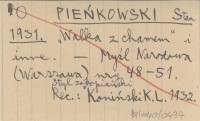 PIEŃKOWSKI Stan.
1931. „Walka z chamem" i
inne. — Myśl Narodowa
(Warszawa) nry 48-51.
Rec.: Koniński K.L. 1932.